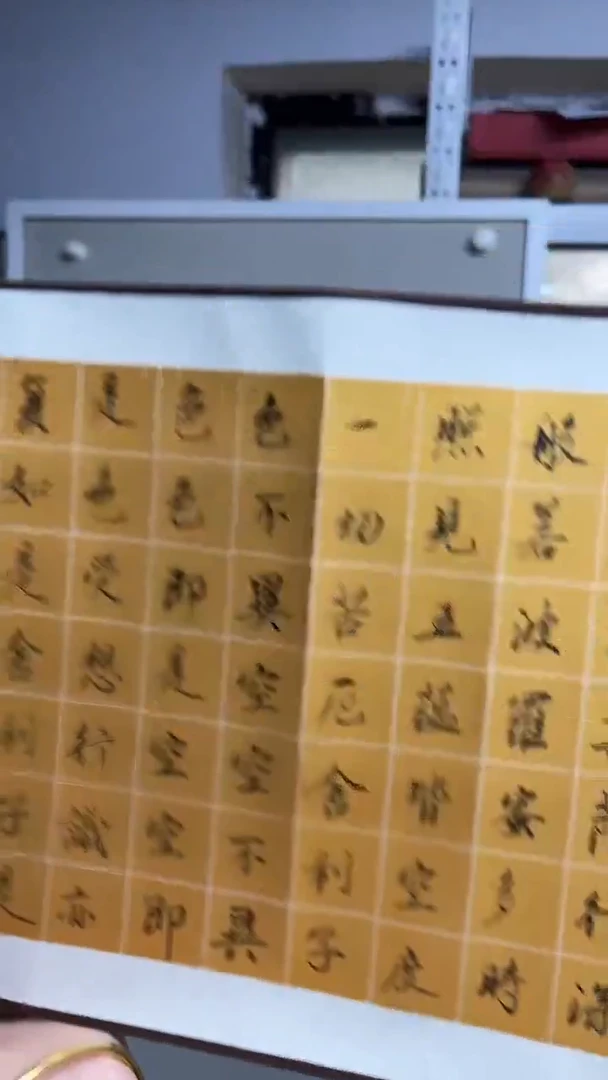 深
般若波羅蜜多時
照見五蘊皆空度
一切苦厄舍利子
色不異空空不異
色色即是空空即
是色受想行識亦
復如是舍利子是